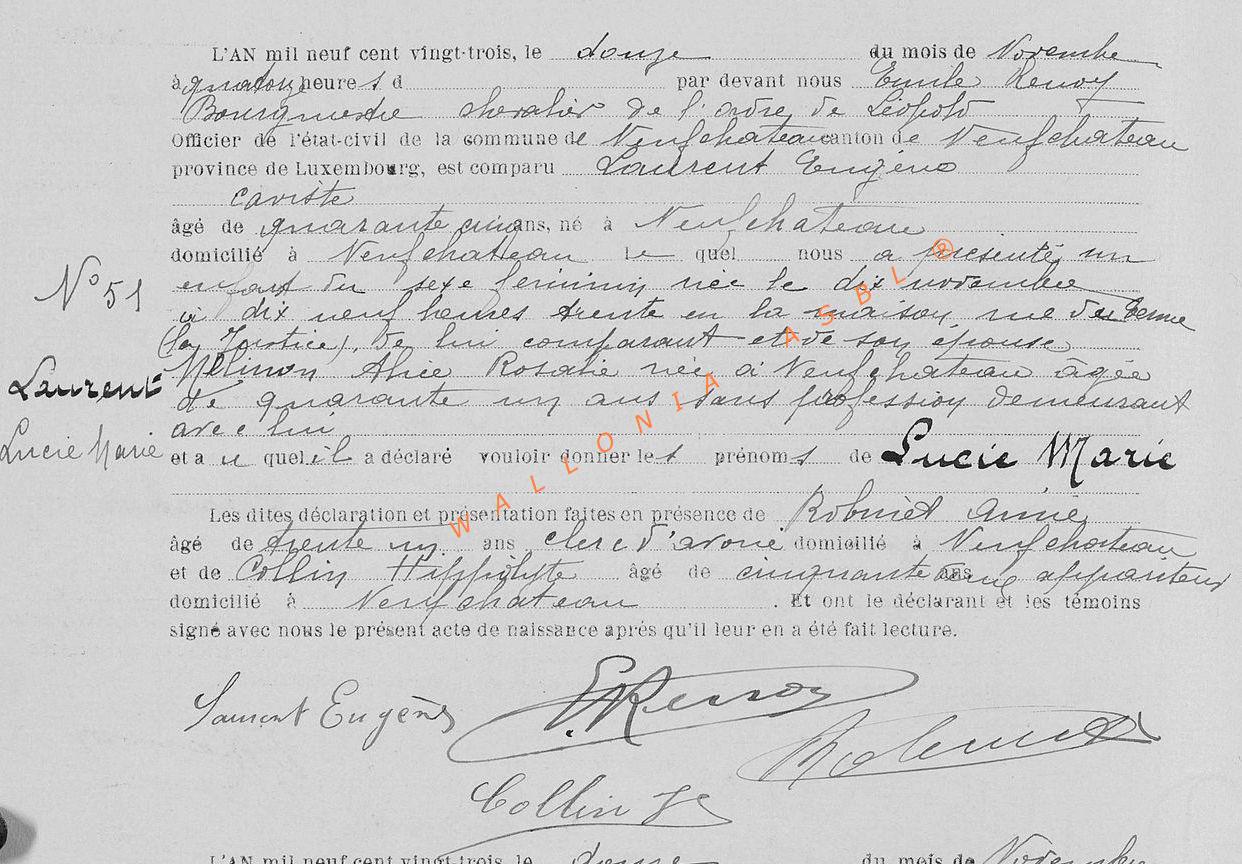 L'AN mil neuf cent vingt-trois, le douze du mois de Novembre
à quatorze heures d par devant nous Emile Renoy
Bourgmestre chevalier de l'ordre de Léopold
Officier de l'état-civil de la commune de Neufchateau canton de Neufchateau
province de Luxembourg, est comparu Laurent Eugène
caviste
âgé de quarante cinq ans, né à Neufchateau
domicilié à Neufchateau le quel nous a présenté un
N° 51
enfant du sexe féminin née le dix novembre
à dix neuf heures trente en la maison, rue de
(la Justice), de lui comparant et de son épouse
Laurent
Alice Rosalie née à Neufchateau âgée
de quarante un ans sans profession demeurant
avec lui
Lucie Marie
et a u quel il a déclaré vouloir donner les prénoms de Lucie Marie
Les dites déclaration et présentation faites en présence de
âgé de trente un ans clerc d'avoué domicilié à Neufchateau
et de Collin Hippolyte âgé de cinquante cinq ans appariteur
domicilié à Neufchateau . Et ont le déclarant et les témoins
signé avec nous le présent acte de naissance après qu'il leur en a été fait lecture.
Laurent Eugène
E. Renoy
Collin H
WALLONIA ASBL ®
L'AN mil neuf cent vingt-trois, le douze du mois de Novembre